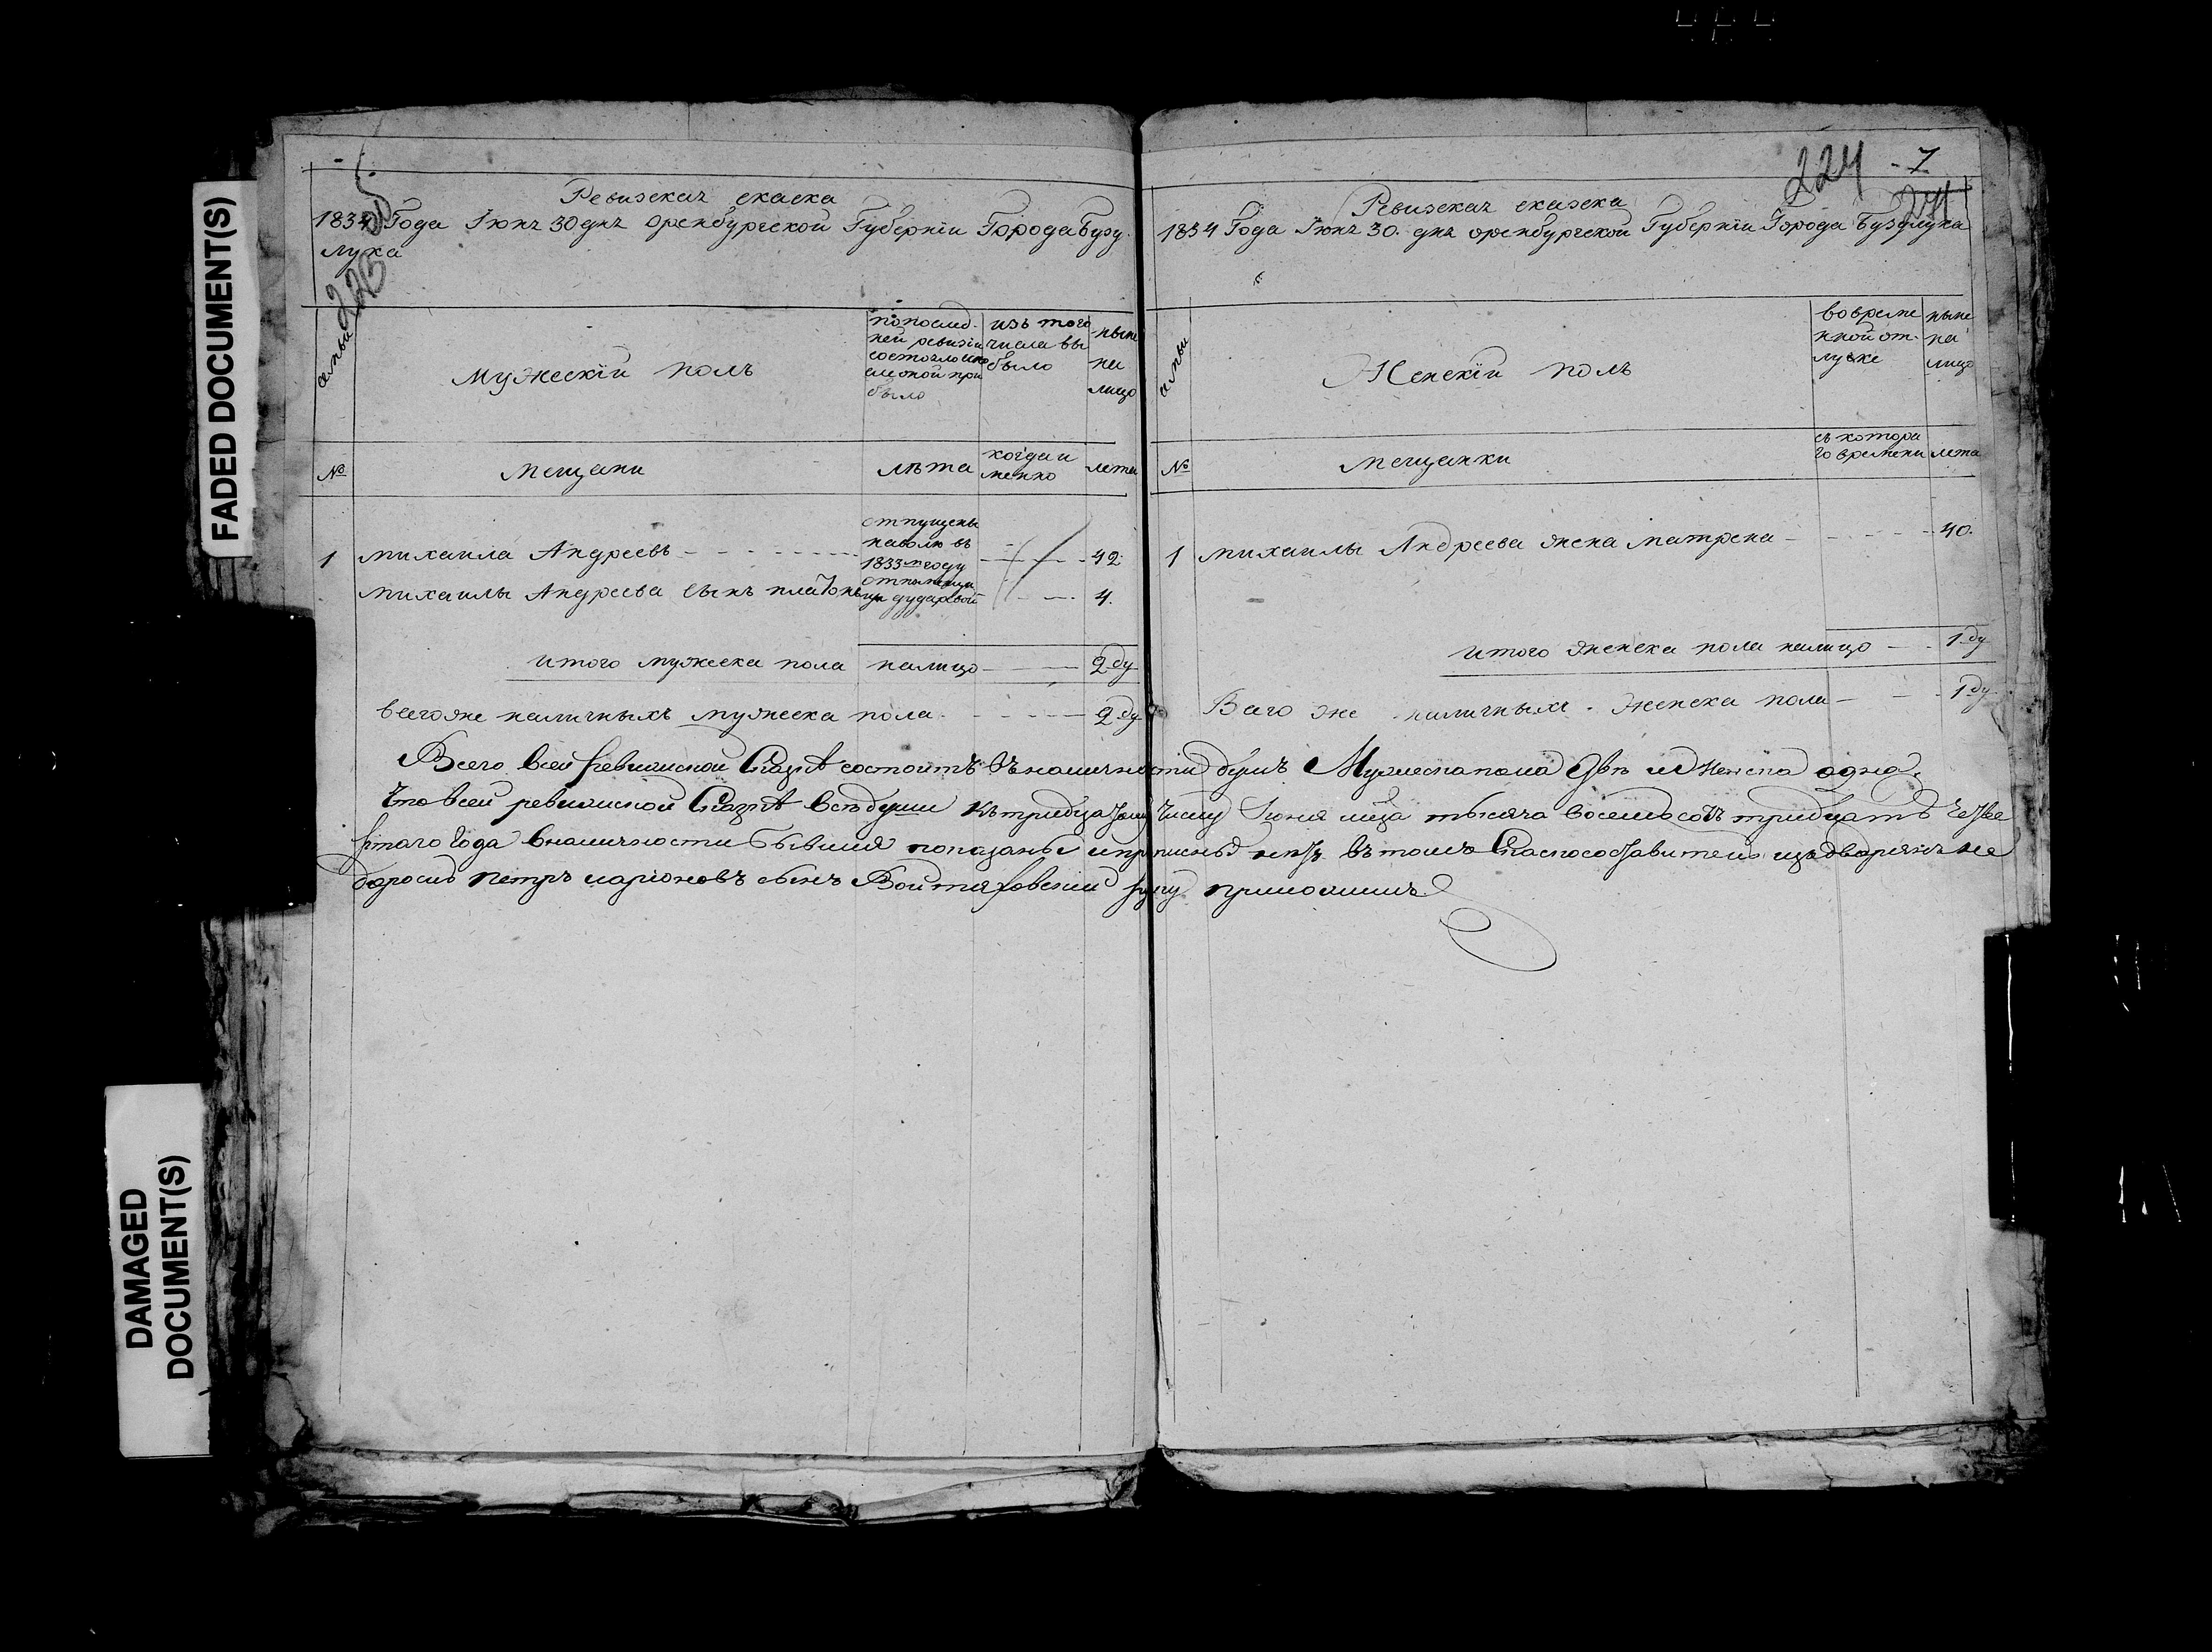 FADED DOCUMENT(S)
DAMAGED
DOCUMENT(S)
Ревизская скаска
1834 Года Июня 30 дня Оренбургской Губернiи Города Бузу
лука
семьи
Мужескiй полъ
попослед
ней ревизiи
состояло и по
оной при
было
изъ того
числа вы
было
ныне
на
лицо
№
Мещани
лѣта
когда и
менно
лета
1 Михаила Андреевъ
отпущены
наволю въ
1833м году
42
Михаилы Андреева сынъ Платонъ
Дударевой
4.
Итого мужеска пола налицо 2 ду
всего же наличныхъ мужеска пола 2 ду
224 7
Ревизская сказска
1834 Года Июня 30. дня Оренбургской Губернiи Города Бузулука
семьи
Женскiй полъ
вовреме
нной от
лучке
ныне
на
лицо
№
Мещанки
съ котора
го времени
лета
1 Михаилы Андреева жена Матрена 40.
Итого женска пола налицо 1 ду
Всего же наличныхъ женска пола 1 ду
Всего в сей ревизской Сказкѣ состоитъ въ наличности душъ Мужеска пола Двѣ и Женска одна.
Что в сей ревизской Сказкѣ всѣ души къ тридцатому числу Июня мца тысяча восемьсотъ тридцать четве
ртаго года в наличности бывшiя показаны и прописныхъ нѣтъ въ томъ Сказкосоставитель изъ дворянъ не
доросль Петръ Ларiоновъ сынъ Войтяховскiй руку приложилъ